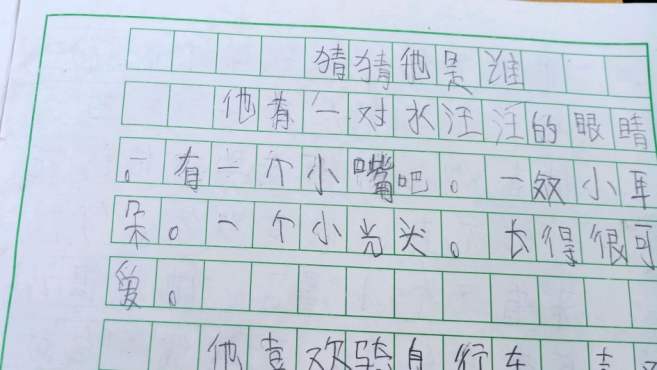 猜猜他是谁
他有一对水汪汪的眼睛
。有一个小嘴吧。一双小耳
朵。一个小光头。长得很可
爱。
他喜欢骑自行车